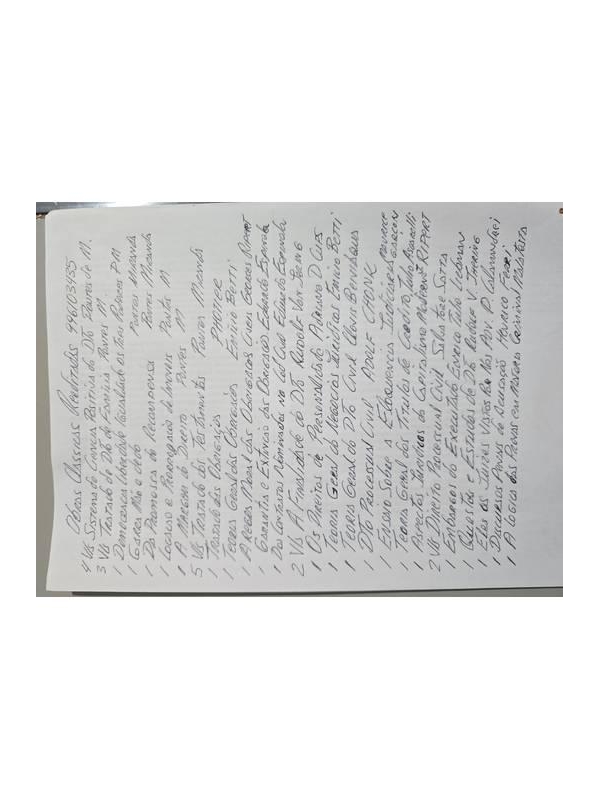 Obras Classicas Reunidas
4 Vls Sistema de Ciencia Positiva do Dto Pontes de M.
3 Vls Tratado do Dto de Familia Pontes M
1 Democracia Liberdade Igualdade os tres Caminhos P M
1 Garra Mão e dedo Pontes Miranda
1 Da Promessa de Recompensa Pontes Miranda
1 Pontes M
1 A Margem do Direito Pontes M
5 Vls Tratado dos Testamentos Pontes Miranda
1 Tratado das Obrigações POTHIER
1 Teoria Geral das Obrigações Emilio Betti
1 A Regra Moral das Obrigações Civis Georges Ripert
1 Garantia e Extinção das Obrigações Eduardo Espinola
1 Dos Contratos Nominados no Cod Civil Eduardo Espinola
2 Vls A Finalidade do Dto Rudolf Von Ihering
1 Os Direitos de Personalidade Adriano D Cupis
1 Teoria Geral do Negocio Juridico Emilio Betti
1 Teoria Geral do Dto Civil Clovis Bevilaqua
1 Dto Processual Civil Adolf SCHONKE
1 Ensaio Sobre a Eloquencia Judiciaria Maurice Garçon
1 Teoria Geral dos Titulos de Credito Tulio Ascarelli
1 Aspectos Juridicos do Capitalismo Moderno RIPERT
2 Vls Direito Processual Civil Salvatore Satta
1 Embargos do Executado Enrico Tulio Liebman
1 Questões e Estudos de Dto Rudolf V. Ihering
1 Eles os Juizes Vistos por nós Adv P. Calamandrei
1 Discursos Penais de Acusação Henrico Ferri
1 A Logica das Provas em Materia Criminal Malatesta